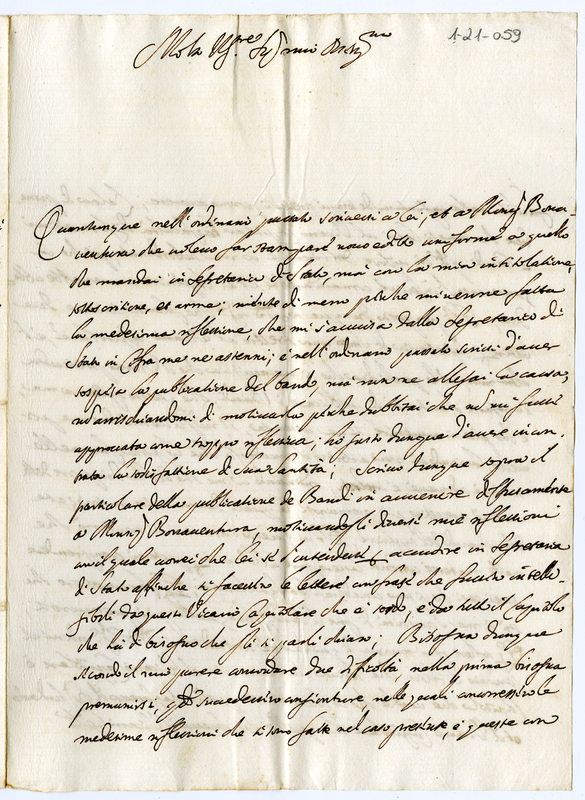 1-21-059
Molto Ill.re Sig.r mio Oss.mo
Quantunque nell'ordinario passato scrivessi a lei, et a Mons.r Bona-
ventura che volevo far stampare novo editto uniforme a quello
che mandai in Segretaria di Stato, mà con la mia intitolatione,
sottoscritione, et arma; niente di meno perche mi venne fatta
la medesima riflessione, che mi s'accusa dalla Segretaria di
Stato in Cifra me ne astenni; e nell'ordinario passato scrissi d'aver
sospesa la publicatione del bando, mà non ne allegai la causa,
non arrischiandomi di motivarla perche dubitai che non mi fusse
approvata come troppo riflessiva; hò gusto dunque d'avere incon-
trata la sodisfattione di Sua Santità; Scrivo dunque sopra il
particolare della publicatione de Bandi in avvenire diffusamente
a Mons.r Bonaventura, motivandogli diverse mie riflessioni
con il quale vorrei che lei se l'intendesse per accudire in Segretaria
di Stato affinche si facessero le lettere con frasi che fussero intelli-
gibili da questo Vicario Capitolare che è sordo, e da tutto il Capitolo
che hà di bisogno che gli si parli chiaro; Bisogna dunque
secondo il mio parere concordare due difficoltà, nella prima bisogna
premunirsi, q.do succedessero congionture, nelle quali concorressero le
medesime riflessioni che si sono fatte nel caso presente, e queste con